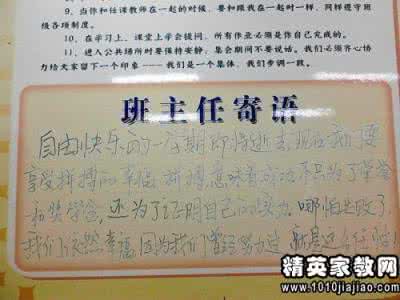 9、当你和任课教师在一起的时候，要和跟我在一起时一样，同样遵守班
级各项制度。
10、在学习上，课堂上学会提问，所有作业必须是你自己完成的。
11、进入公共场所时要保持安静；集会期间不要说话。我们必须齐心协
力给大家留下一个印象——我们是一个集体，我们步调一致。
班主任寄语
自由快乐的一 期即将逝去现在我们要
享受拼搏的幸福 拼搏意味着成功不只为了荣誉
和奖学金，还为了证明自己的 哪怕失败了
我们依然幸福因为我们曾经努力过
精英家教网
www.1010jiajiao.com